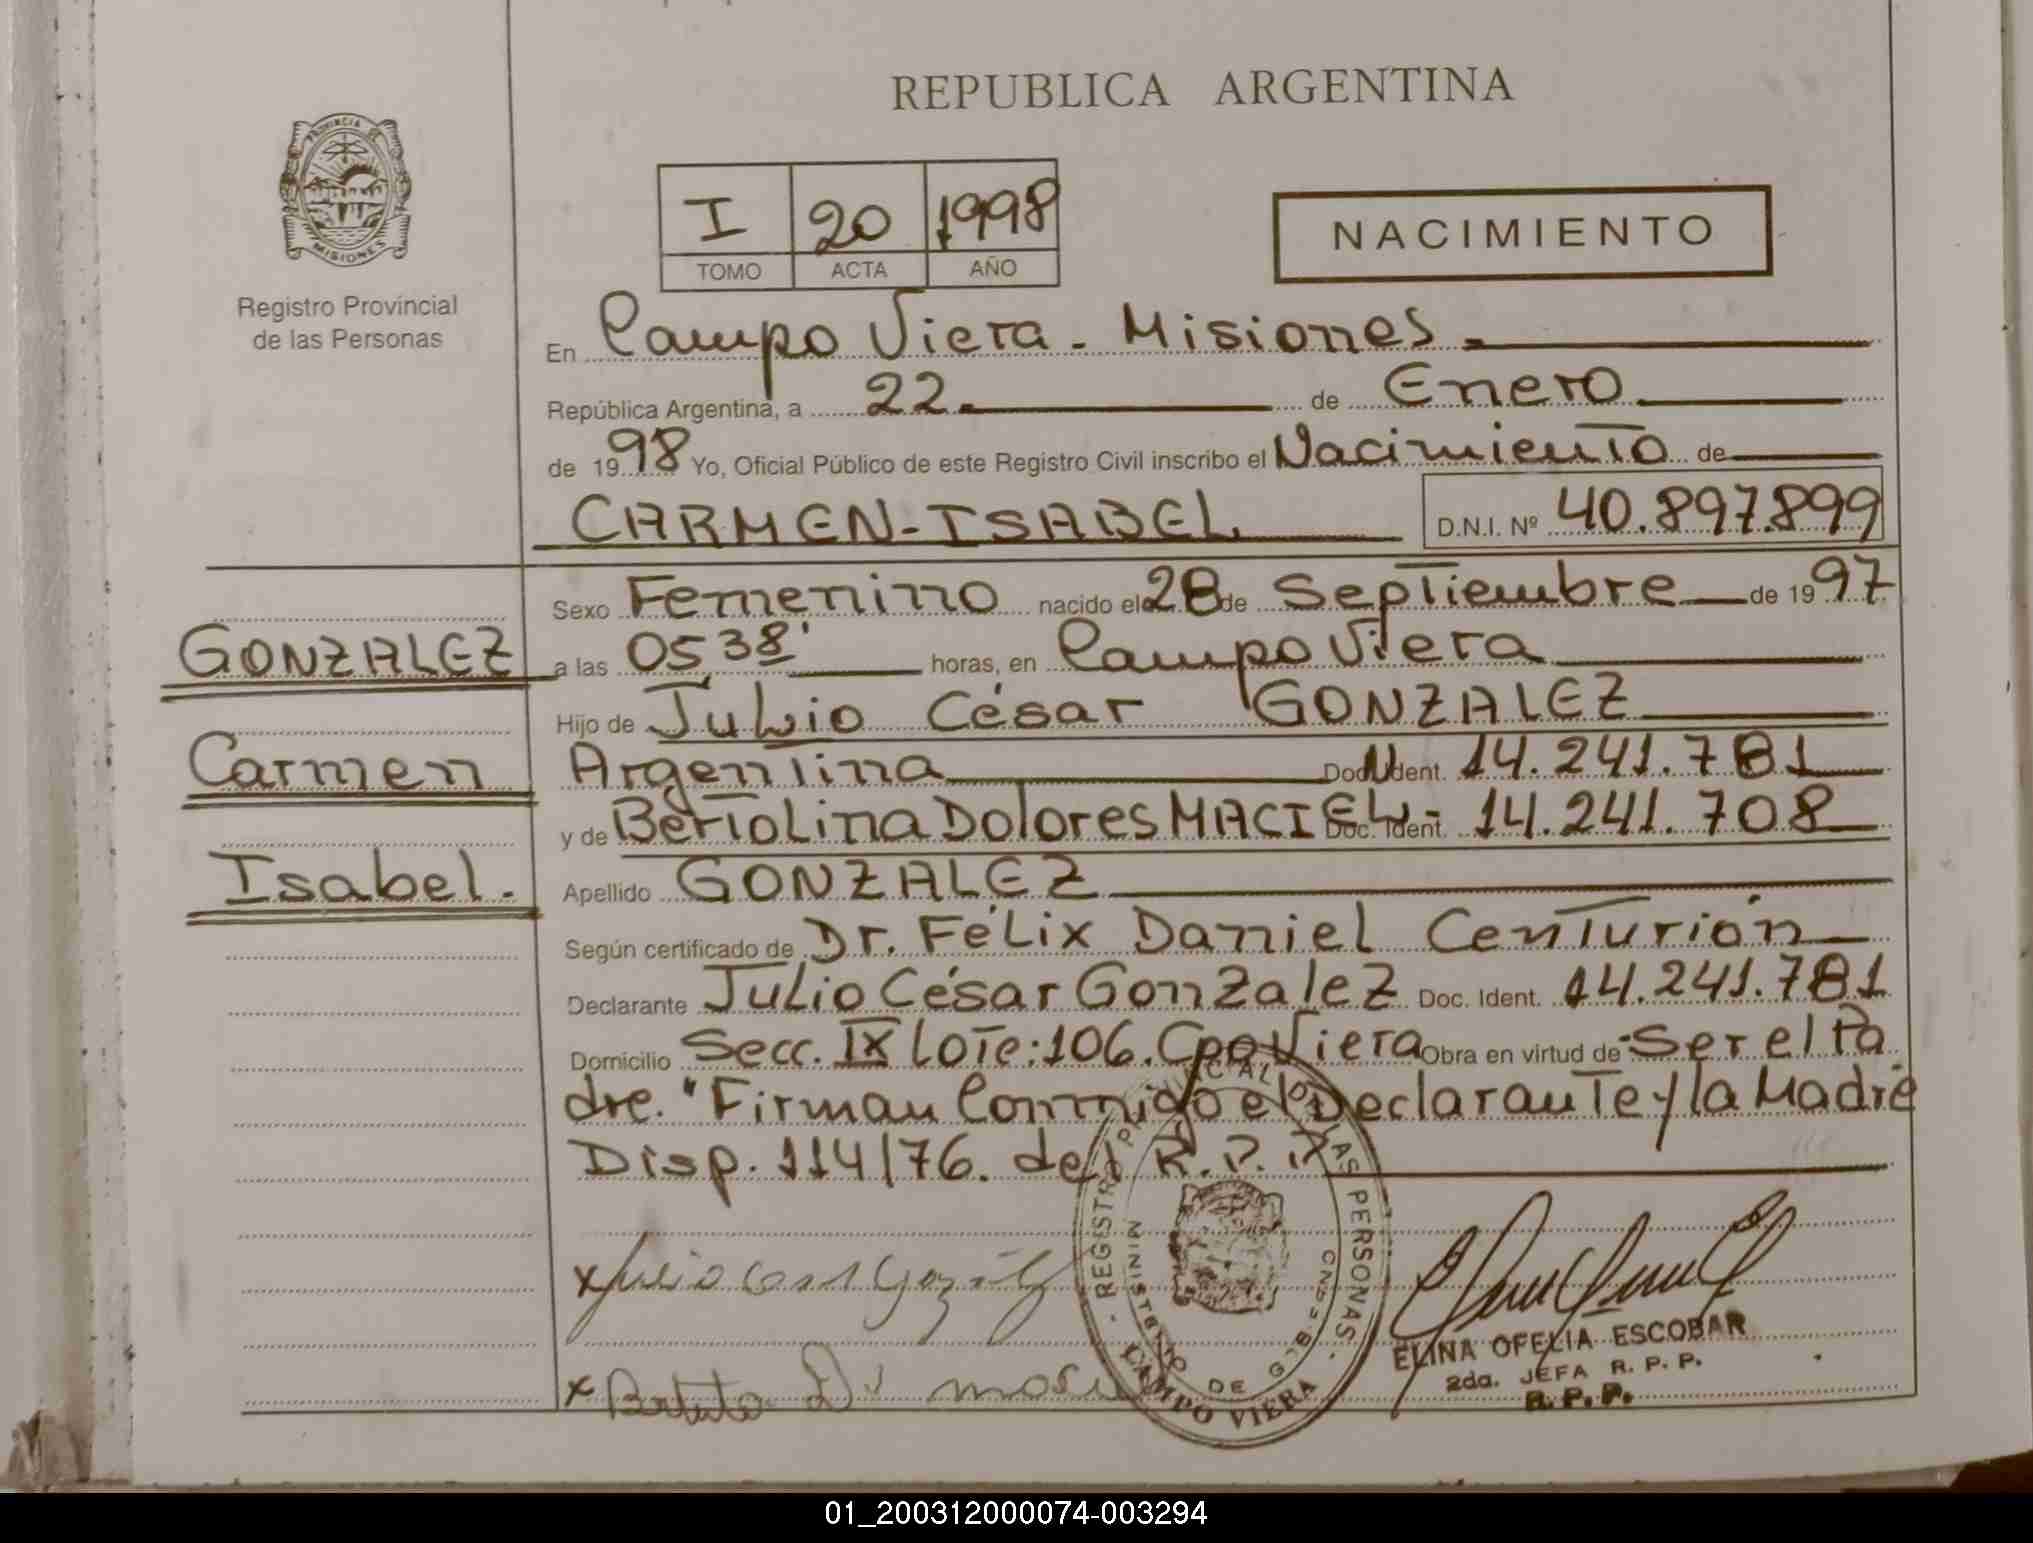 REPUBLICA ARGENTINA
PROVINCIA DE
MISIONES
Registro Provincial
de las Personas
I 20 1998
TOMO ACTA AÑO
NACIMIENTO
En Campo Viera - Misiones.
República Argentina, a 22 de Enero
de 1998 Yo, Oficial Público de este Registro Civil inscribo el Nacimiento de
CARMEN-ISABEL D.N.I. Nº 40.897.899
Sexo Femenino nacido el 28 de Septiembre de 1997
GONZALEZ
a las 05 38' horas, en Campo Viera
Hijo de Julio César GONZALEZ
Carmen
Argentina Doc. Ident. 14.241.781
y de Bertolina Dolores MACIEL- Doc. Ident. 14.241.708
Isabel.
Apellido GONZALEZ
Según certificado de Dr. Félix Daniel Centurión
Declarante Julio César Gonzalez Doc. Ident. 14.241.781
Domicilio Secc. IX Lote:106. Cpo Viera Obra en virtud de Ser el Pa
dre. "Firman Conmigo el Declarante y la Madre
Disp. 114/76. del R.P.P
REGISTRO PROVINCIAL DE LAS PERSONAS
MINISTERIO DE GOB.
CAMPO VIERA
x Julio Cesar
x
ELINA OFELIA ESCOBAR
2da. JEFA R. P. P.
R. P. P.
01_200312000074-003294